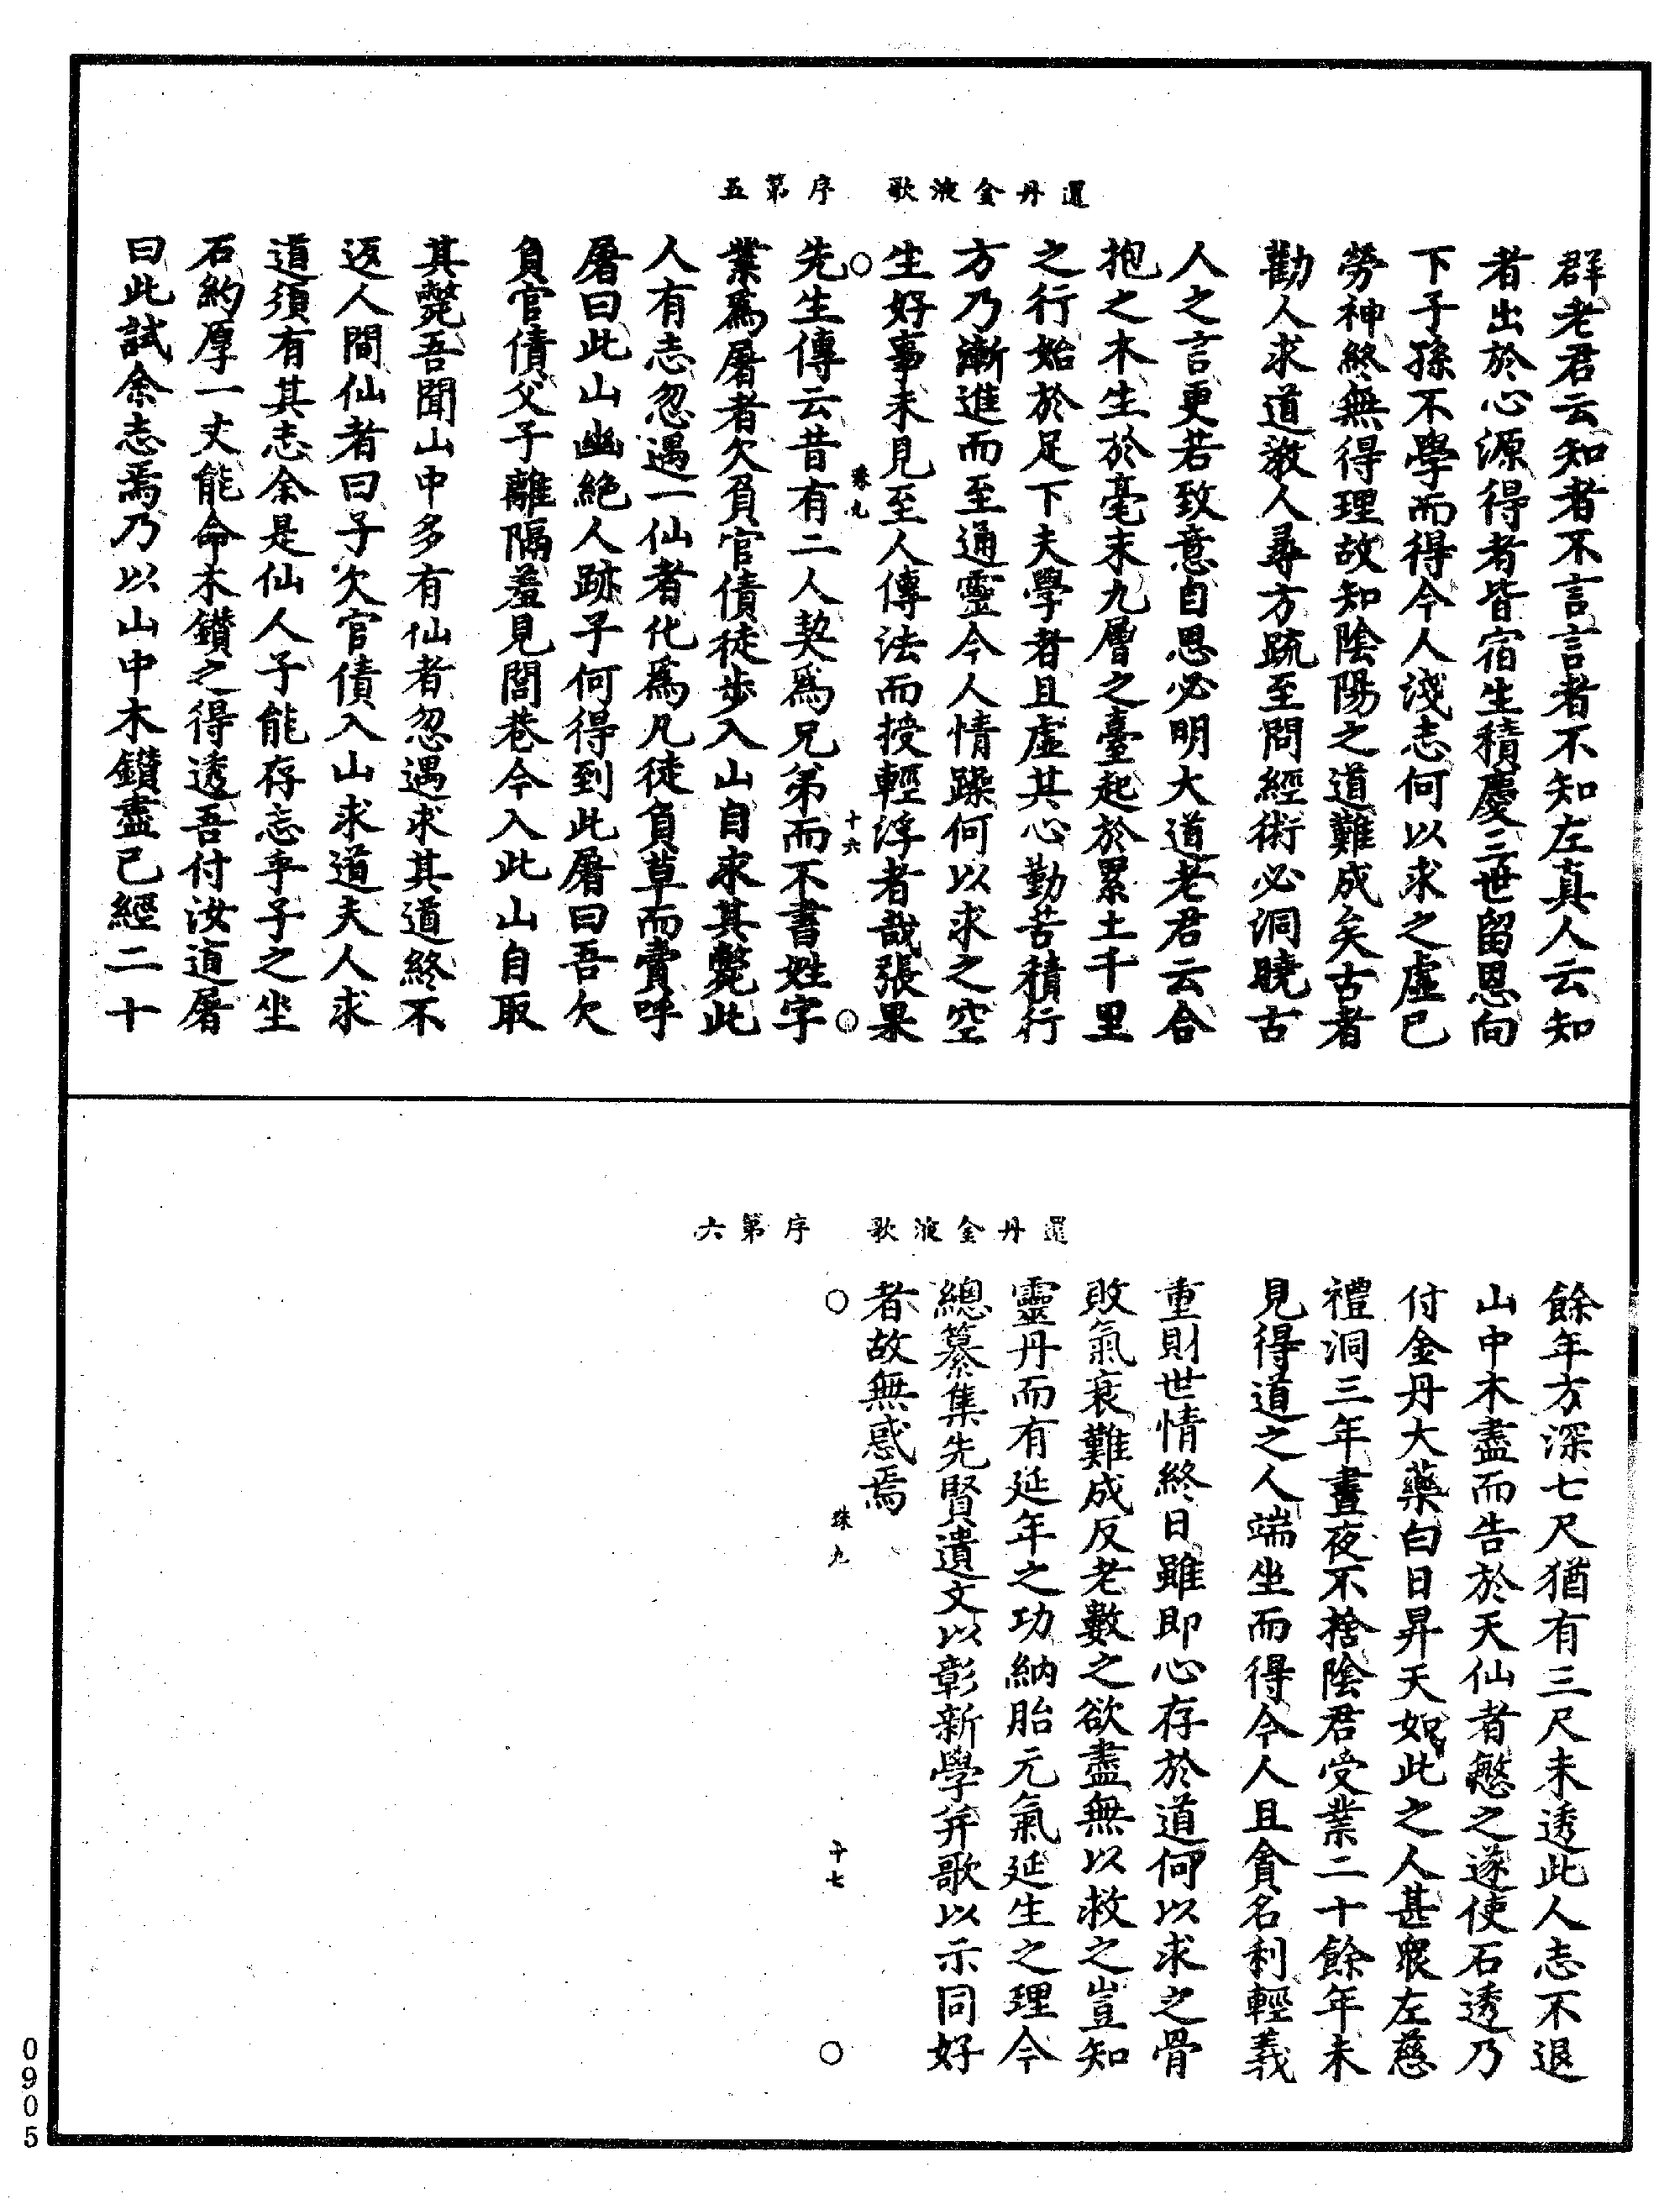 還丹金液歌　序第五
群老君云知者不言言者不知左真人云知
者出於心源得者皆宿生積慶三世留恩向
下子孫不學而得今人淺志何以求之虛已
勞神終無得理故知陰陽之道難成矣古者
勸人求道教人尋方䟽至問經術必洞曉古
人之言更若致意自思必明大道老君云合
抱之木生於毫末九層之臺起於累土千里
之行始於足下夫學者且虛其心勤苦積行
方乃漸進而至通靈今人情躁何以求之空
生好事未見至人傳法而授輕浮者哉張果
珠九　十六
先生傳云昔有二人契爲兄弟而不書姓字
業爲屠者欠負官債徒步入山自求其斃此
人有志忽遇一仙者化爲凡徒負草而賣呼
屠曰此山幽絕人跡子何得到此屠曰吾欠
負官債父子離隔羞見閭巷今入此山自取
其斃吾聞山中多有仙者忽遇求其道終不
返人間仙者曰子欠官債入山求道夫人求
道須有其志余是仙人子能存志乎子之坐
石約厚一丈能命木鑚之得透吾付汝道屠
曰此試余志焉乃以山中木鑚盡已經二十
還丹金液歌　序第六
餘年方深七尺猶有三尺未透此人志不退
山中木盡而告於天仙者慜之遂使石透乃
付金丹大藥白日昇天如此之人甚衆左慈
禮洞三年晝夜不捨陰君受業二十餘年未
見得道之人端坐而得今人且貪名利輕義
重財世情終日雖即心存於道何以求之骨
敗氣衰難成反老數之欲盡無以救之豈知
靈丹而有延年之功納胎元氣延生之理今
總纂集先賢遺文以彰新學并歌以示同好
者故無惑焉
珠九　十七
0905